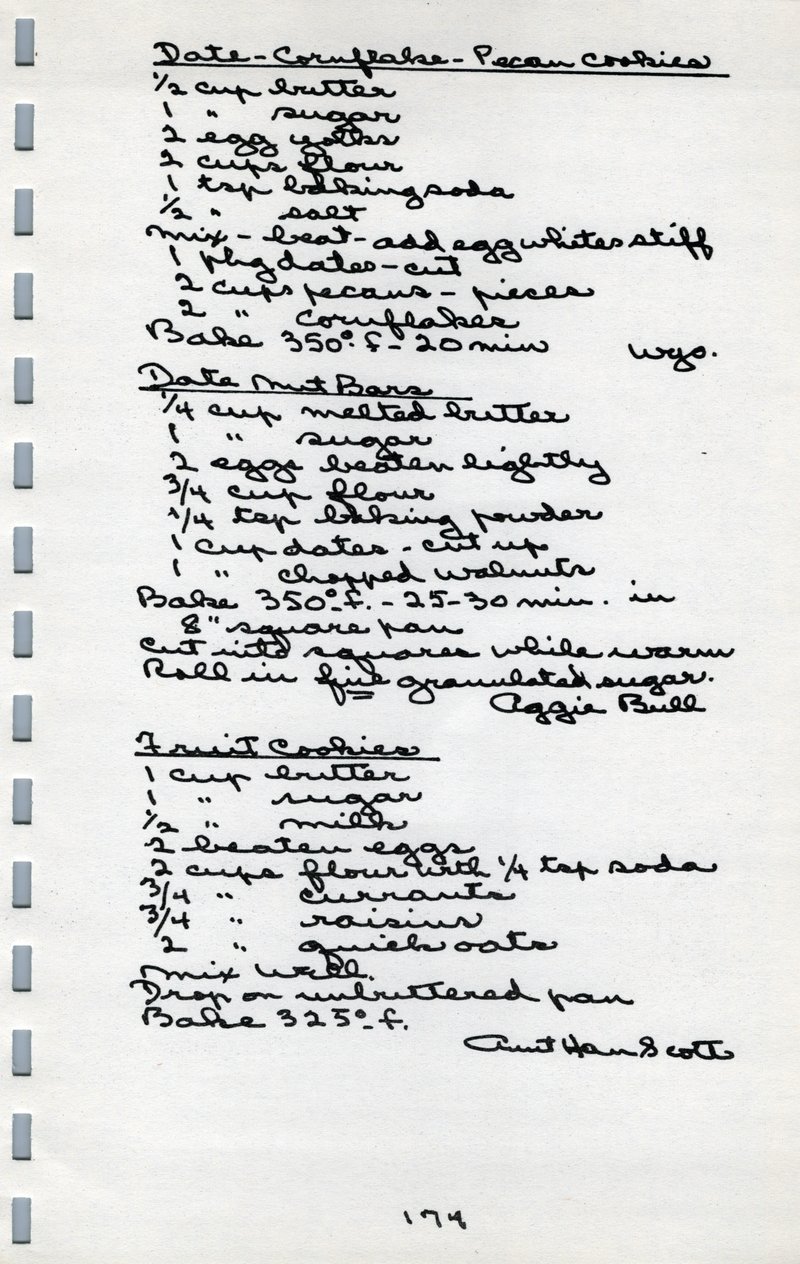 Date-Cornflake-Pecan Cookies
1/2 cup butter
1 " sugar
2 egg yolks
2 cups flour
1 tsp baking soda
1/2 " salt
Mix - beat - add egg whites stiff
1 pkg dates - cut
2 cups pecans - pieces
2 " cornflakes
Bake 350° f - 20 min wgo.
Date Nut Bars
1/4 cup melted butter
1 " sugar
2 eggs beaten lightly
3/4 cup flour
1/4 tsp baking powder
1 cup dates - cut up
1 " chopped walnuts
Bake 350° f. - 25-30 min. in
8" square pan
Cut into squares while warm
Roll in fine granulated sugar.
Aggie Bull
Fruit Cookies
1 cup butter
1 " sugar
1/2 " milk
2 beaten eggs
2 cups flour with 1/4 tsp soda
3/4 " currants
3/4 " raisins
2 " quick oats
Mix well.
Drop on unbuttered pan
Bake 325° f.
Aunt Han Scott
174